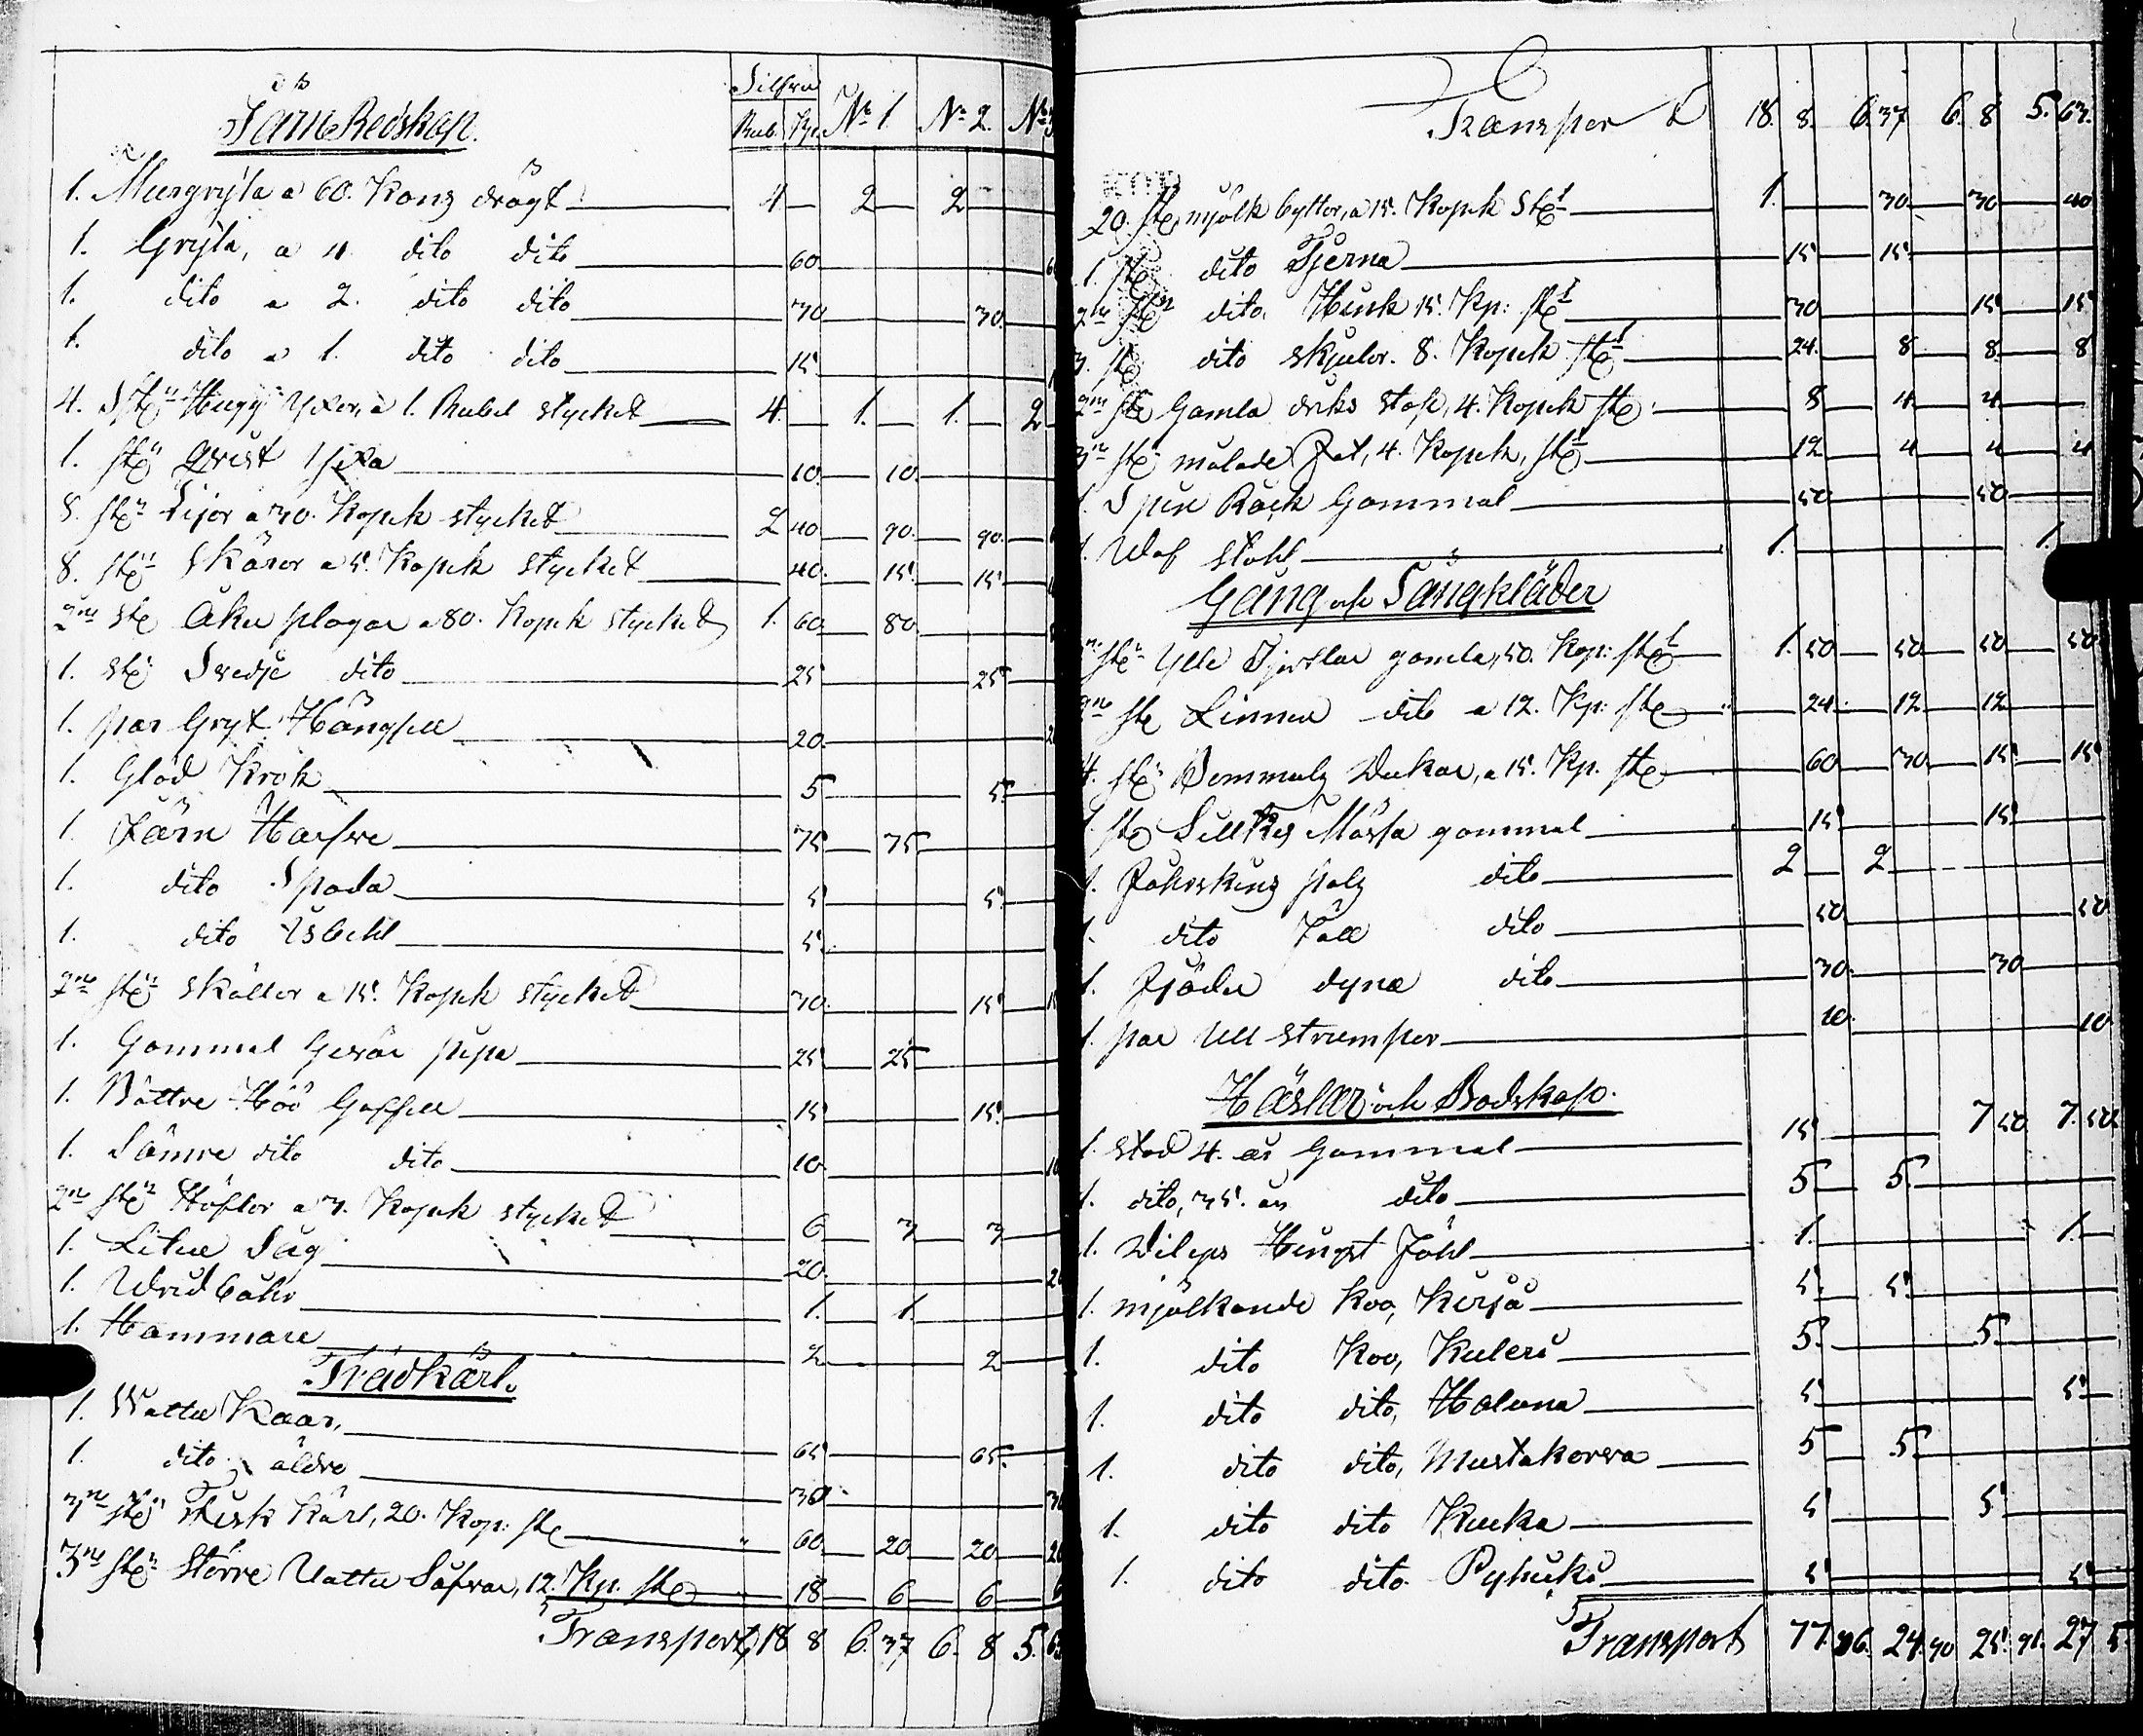 Silfver
Järn Redskap. Rub. Kp. No 1. No 2. No 3
1. Murgryta a 60. Kanz drägt 4 2 2
1. Gryta, a 4 dito dito 60 6
1. dito a 2. dito dito 30 30
1. dito a 1. dito dito 15
4. Stn Hugg Yxor, a 1. Rubel stycket 4. 1. 1. 2
1. st Qvist Yxa 10 10
8. stn Lijor a 30. Kopek stycket 2 40 90 90
8. stn Skäror a 5. Kopek stycket 40 15 15
2ne st Åker plogar a 80. Kopek stycket 1. 60 80
1. st Svedje dito 25 25
1. par Gryt Hängsell 20 2
1. Glöd Krok 5 5
1. Järn Harfve 75 75
1. dito Spada 5 5
1. dito Isbihl 5
2ne stn skällor a 15. Kopek stycket 30 15 1
1. Gammal Gevär pipa 25 25
1. Bättre Höö Gaffell 15 15
1. Sämre dito dito 10 10
2ne stn Höflor a 3. Kopek stycket 6 3 3
1. Liten Såg 20 20
1. Wridbåhr 1. 1.
1. Hammare 2 2
Trädkärl.
1. Wattu Kaar, 65 65
1. dito äldre 30 30
3ne stn Fisk Kärl, 20. Kop: st 60 20 20 20
3ne stn Större Vattu Såfvar, 12. Kp. st 18 6 6 6
Transport 18 8 6. 37 6. 8 5. 63
Transport 18. 8. 6. 37 6. 8 5. 63.
20. st mjölk byttor, a 15. Kopek St 1. 30 30 40
1. st dito Tjerna 15 15
2ne stn dito. Hink 15. Kp: st 30 15 15
3. st dito skjulor. 8. Kopek st 24. 8 8 8
2ne st Gamla driks stop, 4. Kopek st 8 4 4
3ne st målade Fat, 4. Kopek, st 12 4 4 4
1. Spin Råck Gammal 50 50
1. Wäf stohl 1. 1.
Gång och Sängkläder
stn Ylle Tjortlar gamla, 50. Kop: st 1. 50 50 50 50
2ne st Linnen dito a 12. Kp: st 24. 12 12
4. st Bommulz Dukar, a 15. Kp. st 60 30 15 15
1. st Sillkes Mössa gammal 15 15
1. Fåhrskinz pälz dito 2 2
1. dito Fäll dito 50 50
1. Fjäder dyna dito 30 30
1. par Ull strumpor 10 10
Hästar och Bodskap.
1. stod 4. år Gammal 15 7 50 7. 50
1. dito, 35. år dito 5 5
1. Dileps Hingst Fohl 1. 1.
1. mjölkande Koo, Kirjå 5. 5
1. dito Koo, Kuleri 5. 5
1. dito dito, Haluna 5 5
1. dito dito, Mustakorva 5 5
1. dito dito Kucka 5 5
1. dito dito. Pyhicki 5 5
Transport 77. 96. 24. 90 25. 91. 27 5